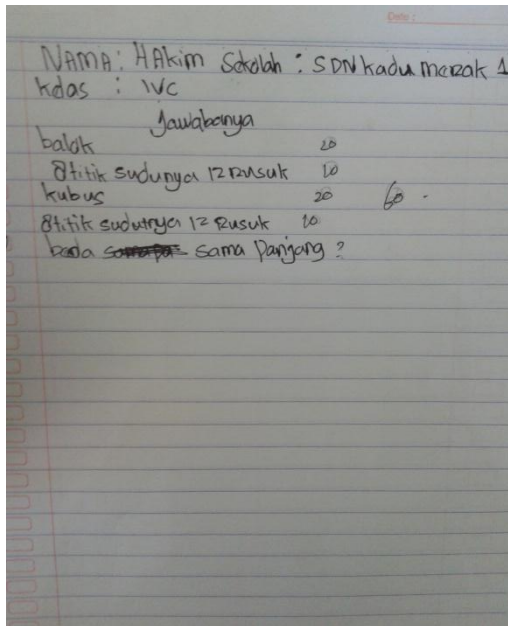 Date :
NAMA : HAkim Sekolah : SDN kadu merak 1
Kelas : IVC
Jawabanya
balok 20
8 titik sudunya 12 Rusuk 10
kubus 20 60 .
8 titik sudutnya 12 Rusuk 10
beda sama Panjang ?